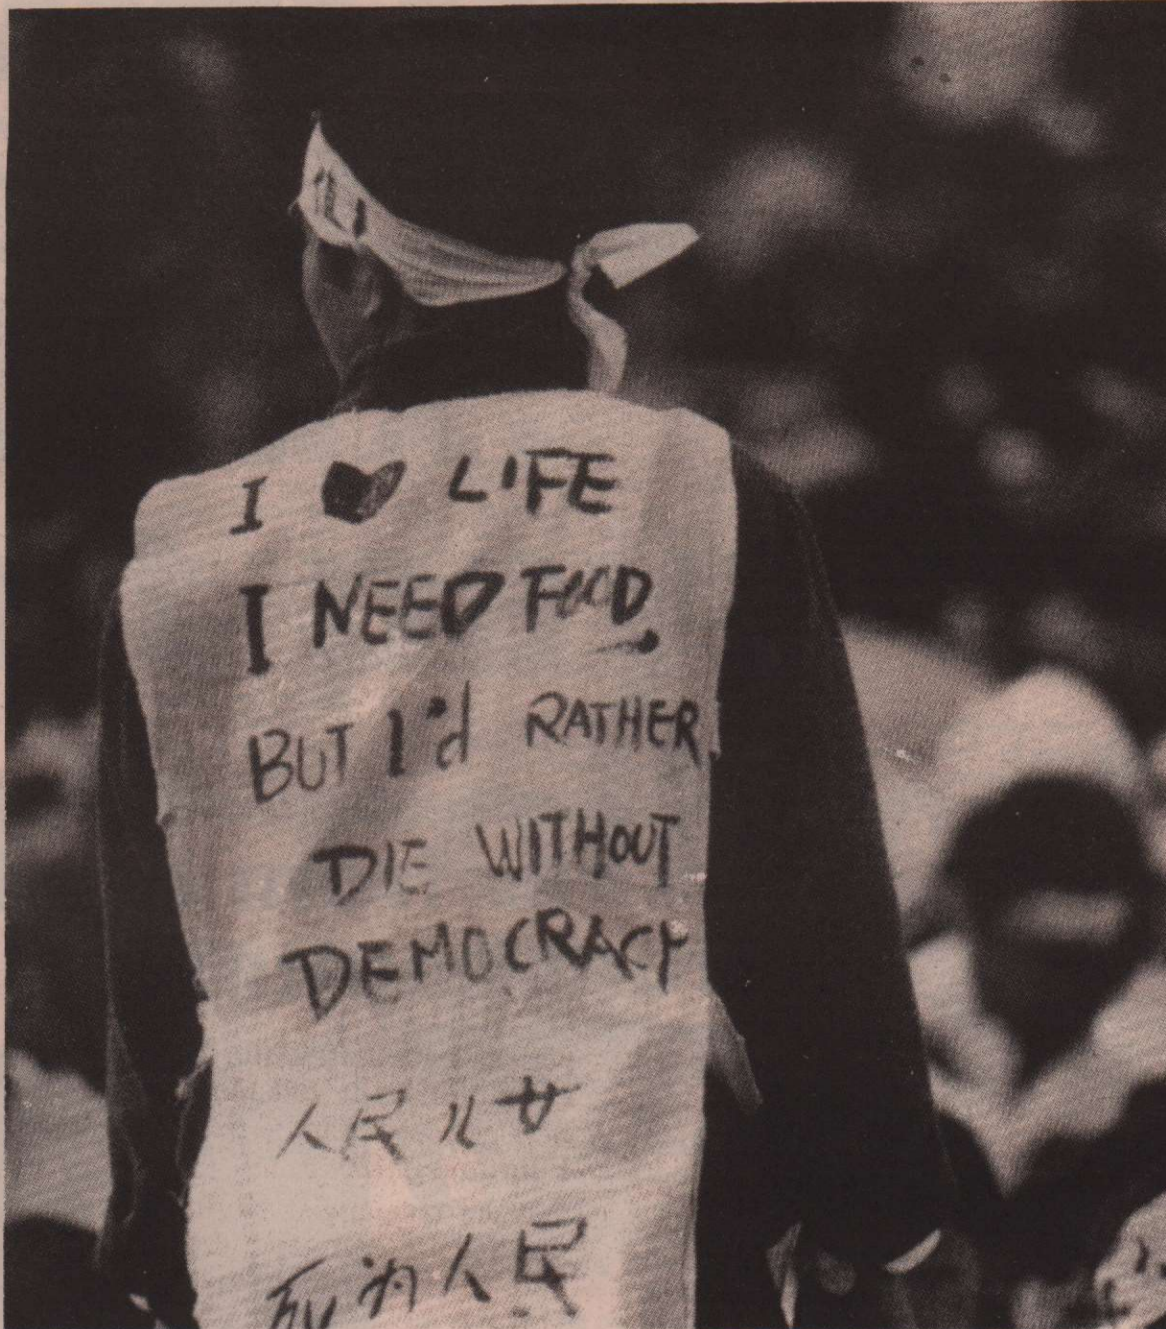 I ♥ LIFE
I NEED FOOD.
BUT I'd RATHER
DIE WITHOUT
DEMOCRACY
人民儿女
为人民